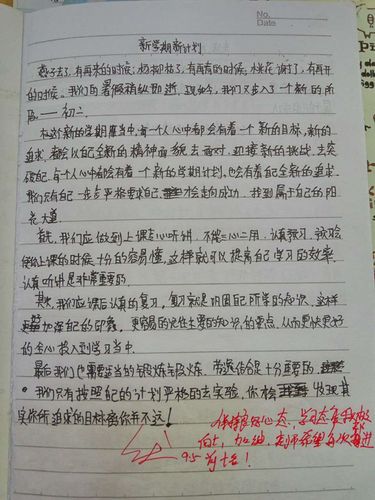 No.
Date
新学期新计划
燕子去了,有再来的时候;杨柳枯了,有再青的时候;桃花谢了,有再开
的时候。我们的暑假稍纵即逝,现如今,我们又步入了一个新的阶
段——初二。
在这个新的学期度当中,每一个人心中都会有着一个新的目标,新的
追求,都会以自己全新的精神面貌去面对,迎接新的挑战,去突
破自己。每个人心中都会有着一个新的学期计划,也会有着自己全新的追求。
我们只有自己一步步严格要求自己,才会走向成功,找到属于自己的阳
光大道。
首先,我们应做到上课专心听讲,不能三心二用,认真预习,
使你上课的时候十分的容易懂,这样就可以提高自己学习的效率,
认真听讲是非常重要的。
其次,我们应课后认真的复习,复习就是巩固自己所学的知识,这样
加深自己的印象,更容易的记住主要的知识的要点,从而更快更好
的全心投入到学习当中。
最后,我们也需要适当的锻炼锻炼,劳逸结合是十分重要的。
我们只有按照自己的计划严格的去实施,你才会发现其
实你所追求的目标离你并不远!
保持良好心态,学习态度积极
向上,加油,老师希望每次都进
95 前十名!